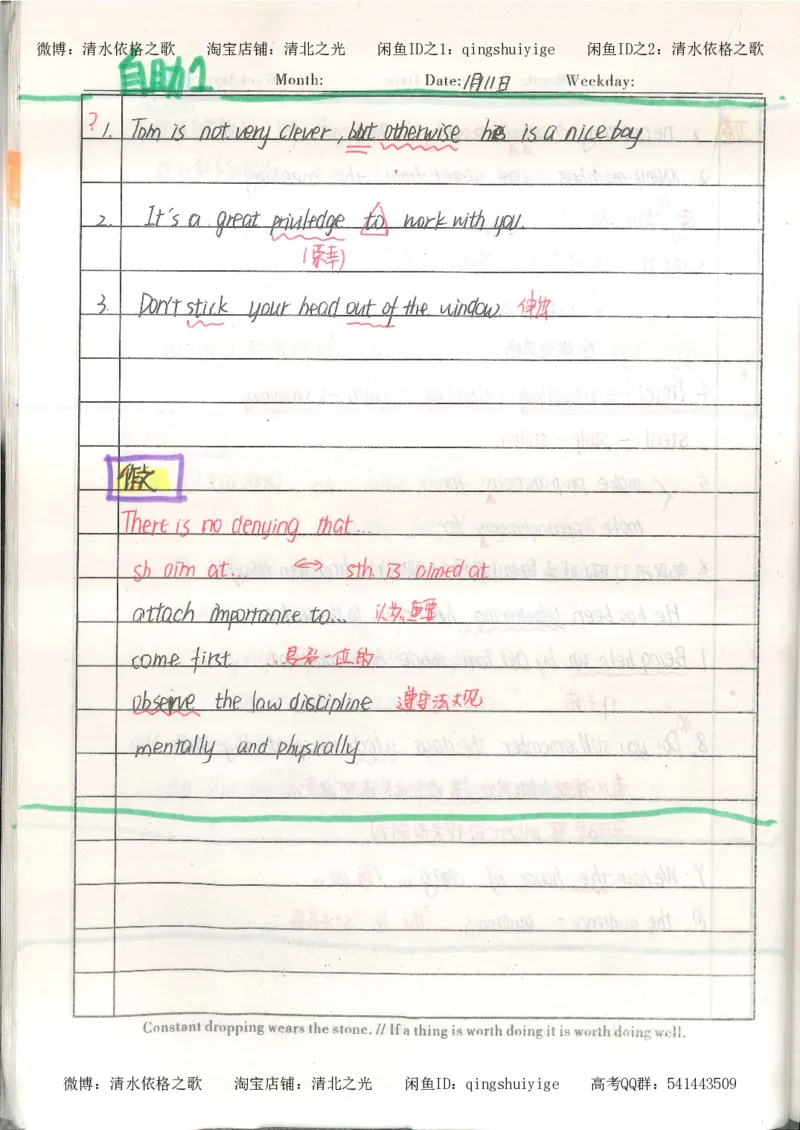 微博：清水依格之歌 淘宝店铺：清北之光 闲鱼ID之1：qingshuiyige 闲鱼ID之2：清水依格之歌
自助1
Month: Date:1月11日 Weekday:
? 1. Tom is not very clever, but otherwise he is a nice boy
2. It's a great priviledge to work with you.
(荣幸)
3. Don't stick your head out of the window 伸出
作文
There is no denying that...
sb aim at... <-> sth. is aimed at
attach importance to... 认为..重要
come first ...是第一位的
observe the law discipline 遵守法规
mentally and physically
Constant dropping wears the stone. // If a thing is worth doing it is worth doing well.
微博：清水依格之歌 淘宝店铺：清北之光 闲鱼ID：qingshuiyige 高考QQ群：541443509